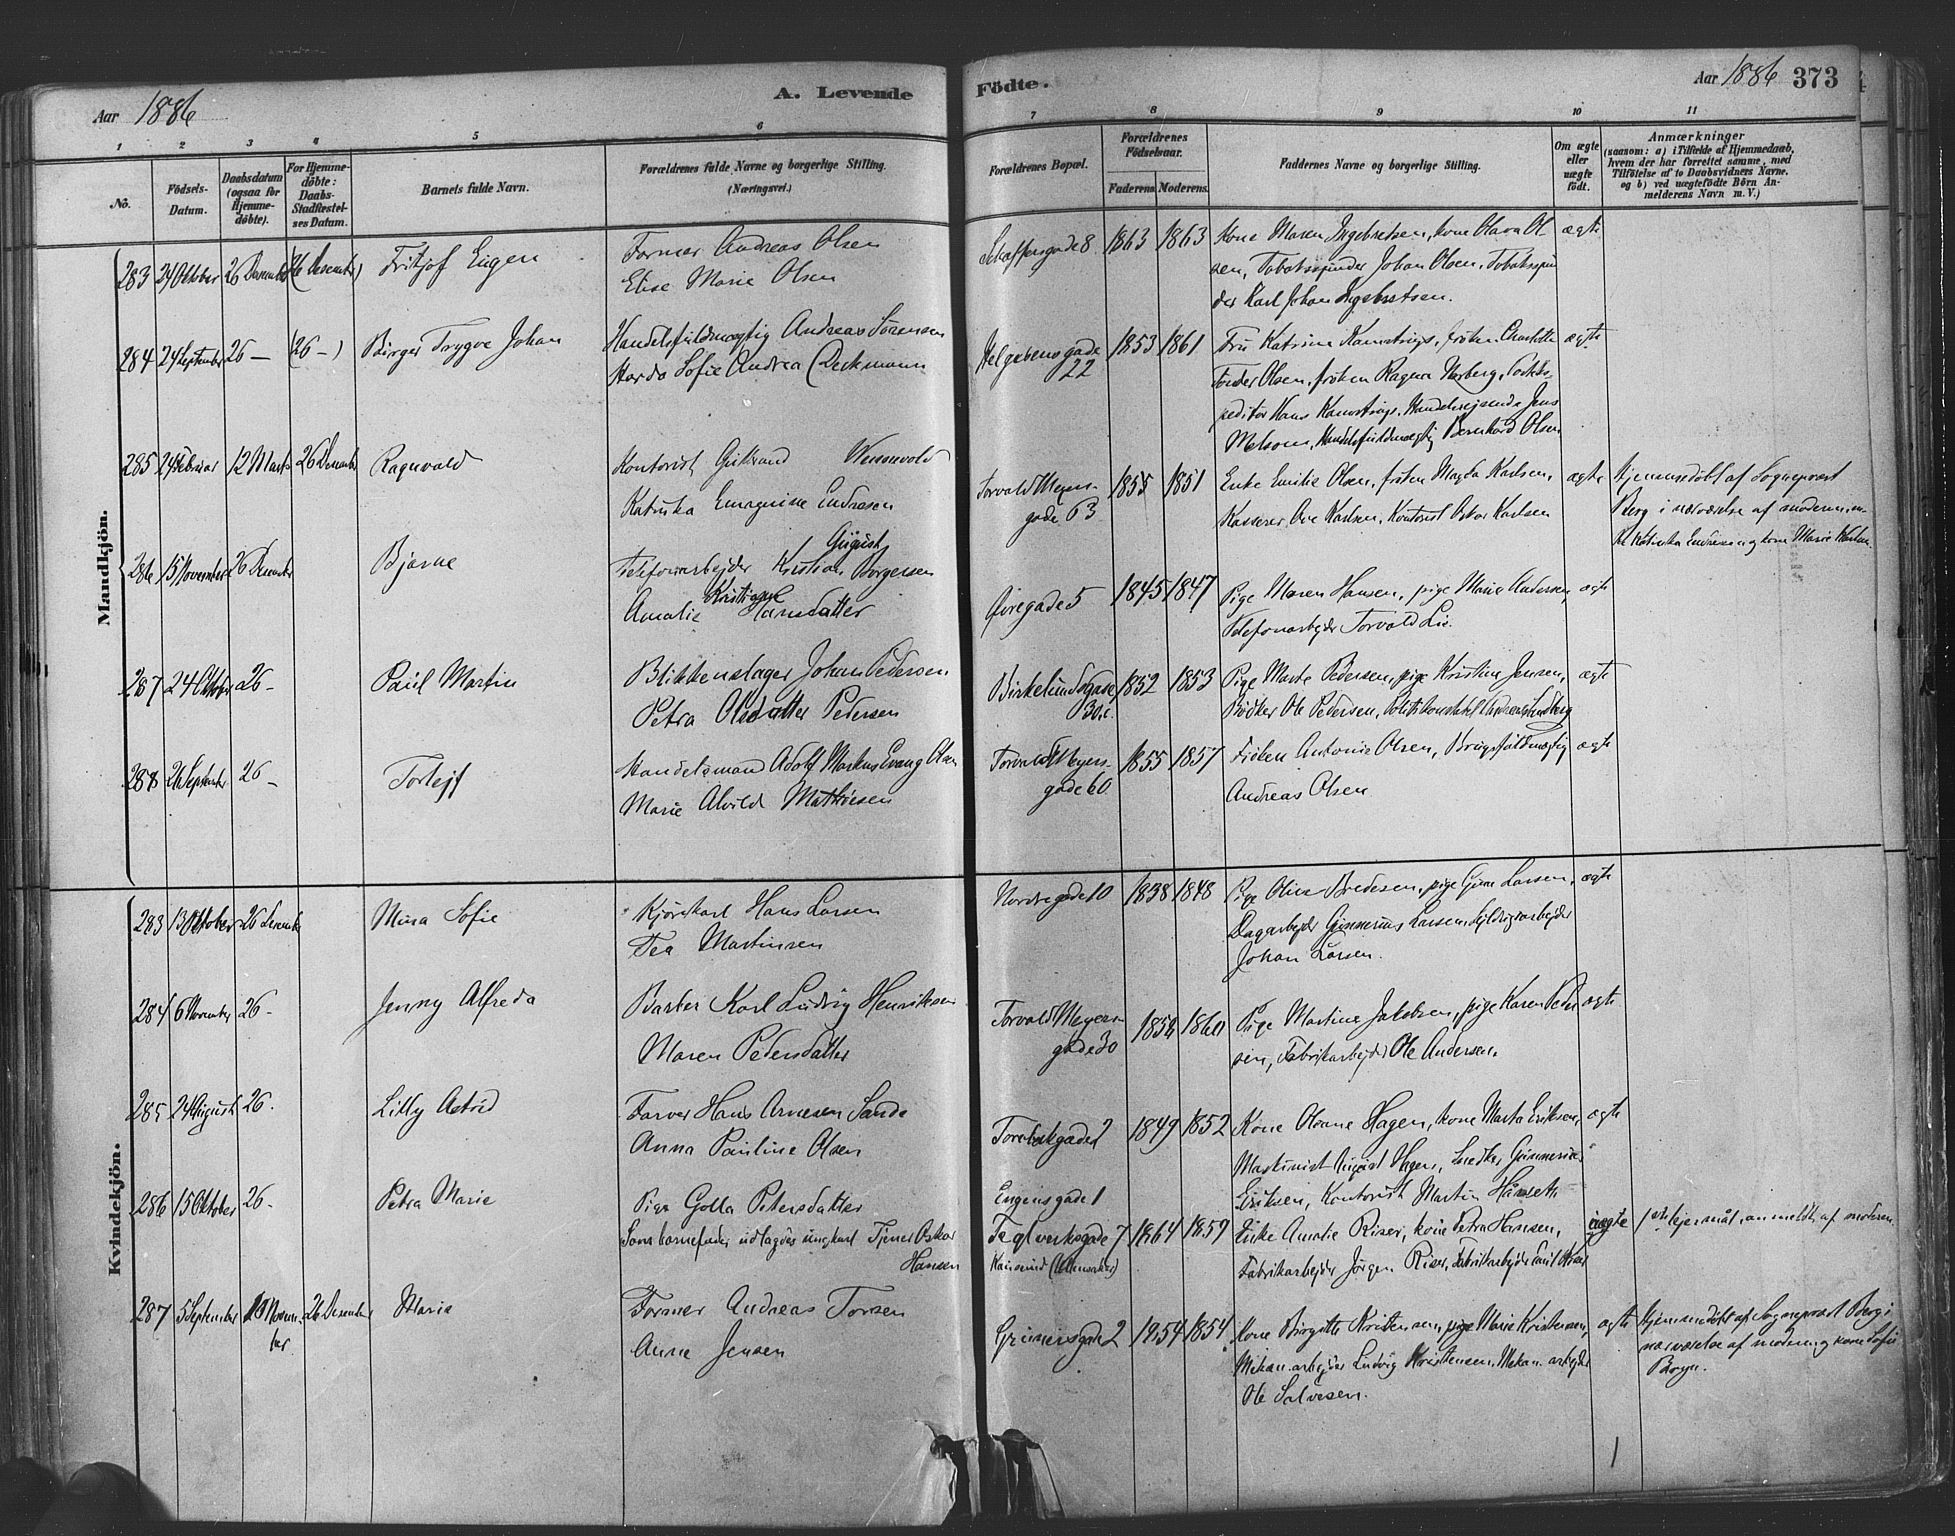 Aar 1886
A. Levende
Fødte.
Aar 1886 373
1 2 3 4 5 6 7 8 9 10 11
No.
Födsels-Datum.
Daabsdatum (ogsaa for Hjemme-döbte).
For Hjemme-döbte: Daabs-Stadfæstel-ses Datum.
Barnets fulde Navn.
Forældrenes fulde Navne og borgerlige Stilling.
(Næringsvei.)
Forældrenes Bopæl.
Forældrenes Födselsaar.
Faderens. Moderens.
Faddernes Navne og borgerlige Stilling.
Om ægte eller uægte födt.
Anmærkninger
(saasom: a) i Tilfælde af Hjemmedaab,
hvem der har forrettet samme, med
Tilföielse af to Daabsvidners Navne,
og b) ved uægtefödte Börn An-
melderens Navn m. V.)
Mandkjön.
283 24 Oktober 26 Desember (26 Desember) Fritjof Eugen Former Andreas Olsen
Elise Marie Olsen
gade 8 1863 1863 Kone Maren Ingebretsen, kone Olava Ol
sen, Tobakspinder Johan Olsen, Tobakspin
der Karl Johan Ingebretsen.
ægte
284 24 September 26 — (26 —) Birger Trygve Johan Handelsfuldmægtig Andreas Sørensen
Sofie Andrea Beckmann
Helgesensgade
22
1853 1861 Fru Katrine Kamstrup, frøken Charlotte
Olsen, frøken Ragna
Hans Kamstrup, Handelsrejsende Jens
Melsom, Handelsfuldmægtig Bernhard Olsen
ægte
285 24 Februar 12 Marts 26 Desember Ragnvald Kontorist
Endresen
Torvald Meyers-
gade 63
1855 1851 Enke Emilie Olsen, frøken Magda Karlsen,
Kasserer Ove Karlsen, Kontorist Oskar Karlsen
ægte Hjemmedøbt af Sogneprest
Berg i nærværelse af moderen
Endresen og kone Marie Karlsen
286 15 November 26 Desember Bjarne Telefonarbejder Kristian August Borgersen
Amalie Kristiane Hansdatter
Øvregade 5 1845 1847 Pige Maren Hansen, pige Marie Andersen,
Telefonarbejder Torvald Lie.
ægte
287 24 Oktober 26 — Paul Martin Blikkenslager Johan Pedersen
Petra Olsdatter Pedersen
Birkelundsgade
30c.
1852 1853 Pige Marte Pedersen, pige Kristine Jensen,
Bødker Ole Pedersen, Politikonstabel Andreas Lundberg
ægte
288 September 26 — Torlejf Handelsmand Adolf Markus Evang Olsen
Marie Alvild Mathisen
Torvald Meyers-
gade 60
1855 1857 Frøken Antonie Olsen, Brugsfuldmægtig
Andreas Olsen
ægte
Kvindekjön.
283 13 Oktober 26 Desember Mina Sofie Kjørekarl Hans Larsen
Tea Martinsen
Nordregade 10 1838 1848 Pige Olive Bredesen, pige Larsen,
Dagarbejder Gunnerius Larsen,
Johan Larsen.
ægte
284 6 November 26 — Jenny Alfreda Barber Karl Ludvig Henriksen
Maren Pedersdatter
Torvald Meyers-
gade 30
1860 Pige Martine Jakobsen, pige Karen Peder
sen, Fabrikarbejder Ole Andersen.
ægte
285 24 August 26. Lilly Astrid Farver Hans Arnesen Sande
Anna Pauline Olsen
gade 2 1849 1852 Kone Oleane Hagen, kone Marta Eriksen,
Maskinist August Hagen, Snedker Gunnerius
Eriksen, Kontorist Martin
ægte
286 15 Oktober 26 — Petra Marie Pige Golla Petersdatter
Som barnefader udlagdes ungkarl Tjener Oskar
Hansen
Engensgade 1
Teglverksgade 7
1864 1859 Enke Amalie Riser, kone Petra Hansen,
Fabrikarbejder Jørgen Riser, Fabrikarbejder Emil
uægte 1ste lejermål, anmeldt af moderen.
287 5 September 10 Novem-
ber
26 Desember Maria Former Andreas Torsen
Anne Jensen
Grünersgade 2 1854 1854 Kone Birgitte Kristensen, pige Marie Kristensen,
Mekan. arbejder Ludvig Kristensen, Mekan. arbejder
Ole Salvesen.
ægte Hjemmedøbt af Sogneprest Berg i
nærværelse af moderen og kone Sofie